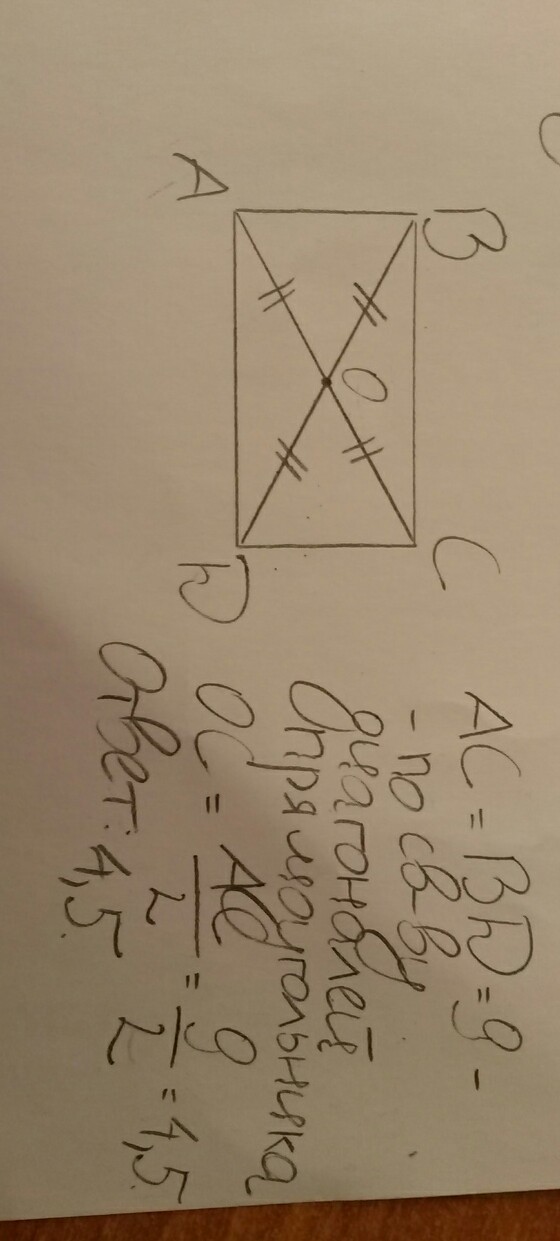 B C
O
A D
AC = BD = 9 -
- по св-ву
диагоналей
прямоугольника
OC = AC/2 = 9/2 = 4,5.
Ответ: 4,5.